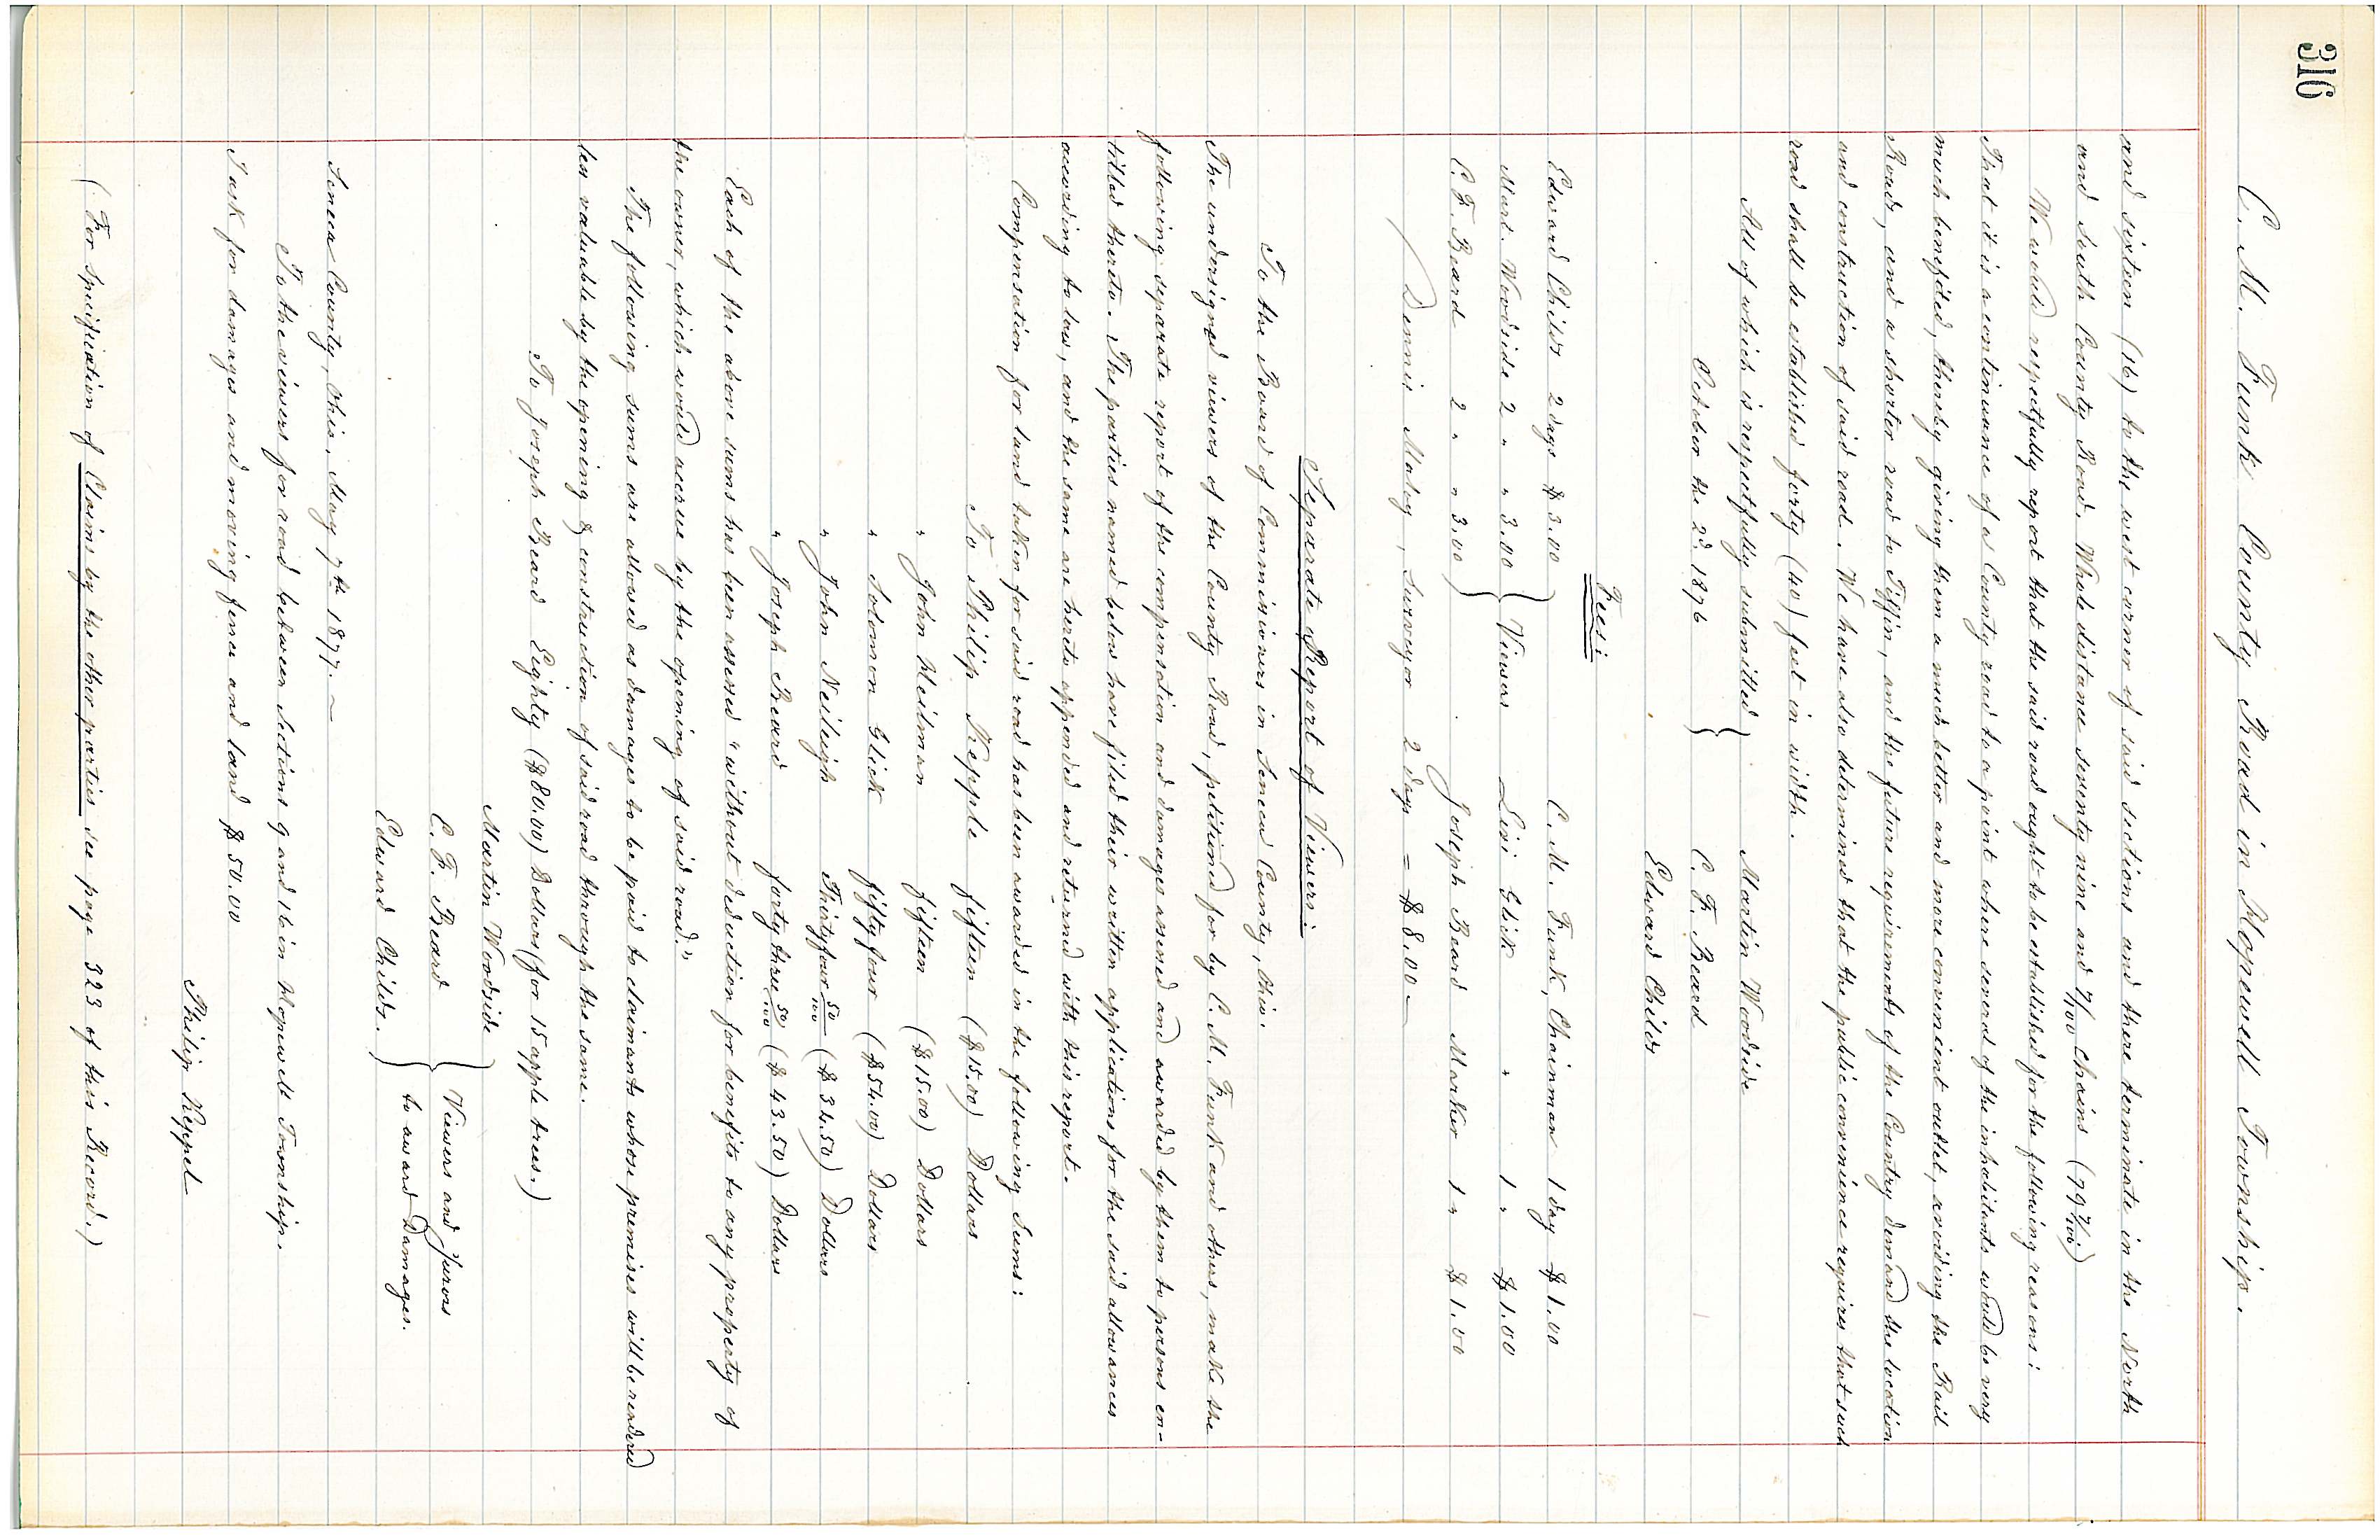 316
C. M. Funk County Road in Hopewell Township.
and sixteen (16) to the west corner of said sections and there terminate in the North
and South County Road. Whole distance seventy nine and 7/100 Chains (79 7/100)
We would respectfully report that the said road ought to be established for the following reasons:
That it is a continuance of a County road to a point where several of the inhabitants would be very
much benefited, thereby giving them a much better and more convenient outlet, avoiding the Rail
Road, and a shorter road to Tiffin, and the future requirements of the Country demand the location
and construction of said road. We have also determined that the public convenience requires that such
road shall be established forty (40) feet in width.
All of which is respectfully submitted } Martin Woodside
October the 2d. 1876 } C. F. Beard
Edward Childs
Fees:
Edward Childs 2 days $3.00 } C. M. Funk, Chainman 1 day $1.00
Mart. Woodside 2 " " 3.00 } Viewers Levi Glick " 1 " $1.00
C. F. Beard 2 " " 3.00 } Joseph Beard Marker 1 " $1.00
Dennis Maloy, Surveyor 2 days = $8.00 –
Separate Report of Viewers:
To the Board of Commissioners in Seneca County, Ohio:
The undersigned viewers of the County Road, petitioned for by C. M. Funk and others, make the
following separate report of the compensation and damages assessed and awarded by them to persons en-
titled thereto. The parties named below have filed their written applications for the said allowances
according to law, and the same are hereto appended and returned with this report.
Compensation for land taken for said road has been awarded in the following Sums:
To Philip Kepple fifteen ($15.00) Dollars
" John Heilman fifteen ($15.00) Dollars
" Solomon Glick fifty four ($54.00) Dollars
" John Neileigh Thirty four 50/100 ($34.50) Dollars
" Joseph Beard forty three 50/100 ($43.50) Dollars
Each of the above sums has been assessed "without deduction for benefits to any property of
the owner, which would accrue by the opening of said road."
The following sums are allowed as damages to be paid to claimants whose premises will be rendered
less valuable by the opening & construction of said road through the same.
To Joseph Beard Eighty ($80.00) Dollars (for 15 apple trees.)
Martin Woodside }
C. F. Beard } Viewers and Jurors
Edward Childs. } to award Damages.
Seneca County, Ohio, May 7th 1877. —
To the viewers for road between sections 9 and 16 in Hopewell Township.
I ask for damages and moving fence and land $50.00
Philip Keppel
(For specification of Claims by the other parties see page 323 of this Record.)